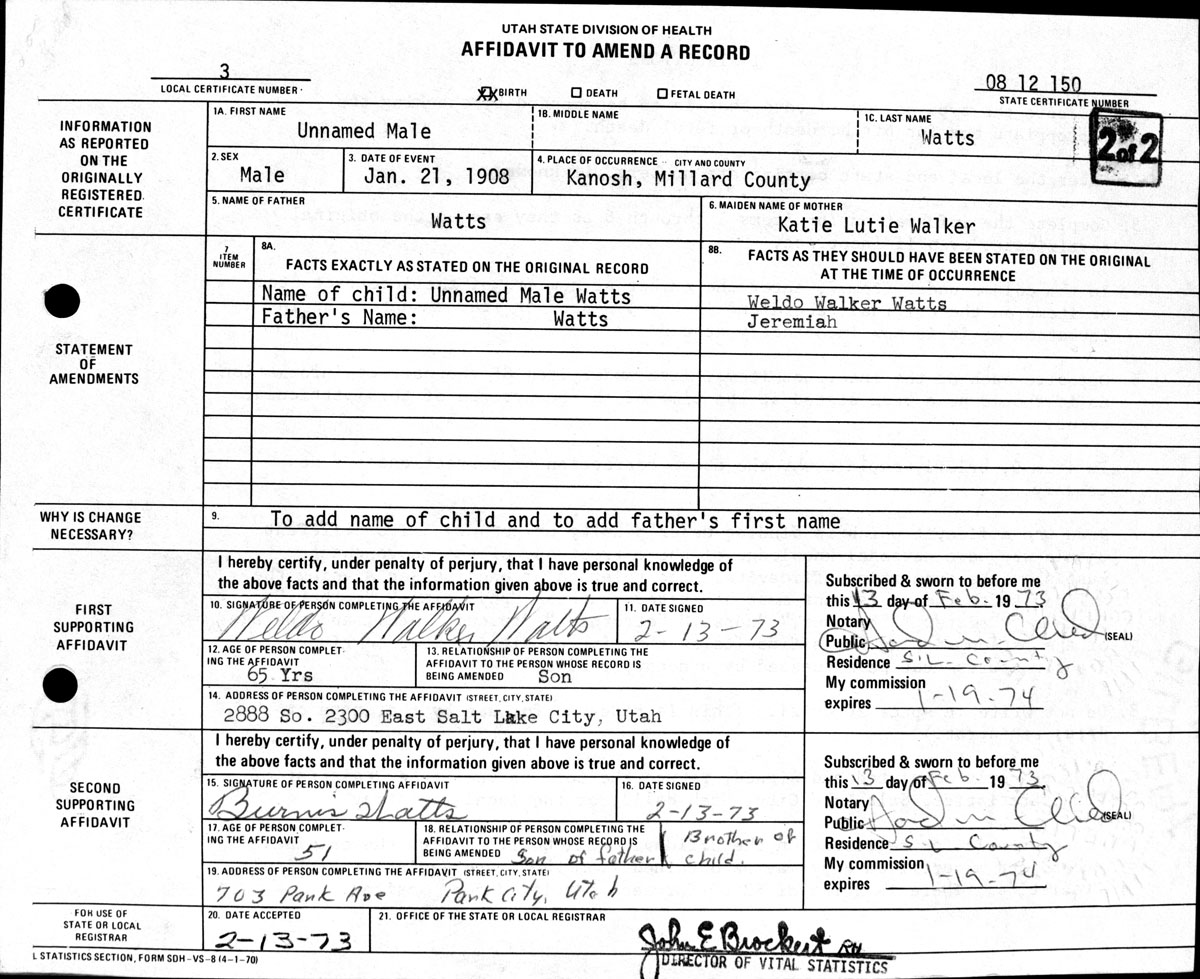 UTAH STATE DIVISION OF HEALTH
AFFIDAVIT TO AMEND A RECORD
3
LOCAL CERTIFICATE NUMBER
XX BIRTH
DEATH
FETAL DEATH
08 12 150
STATE CERTIFICATE NUMBER
2 of 2
INFORMATION
AS REPORTED
ON THE
ORIGINALLY
REGISTERED
CERTIFICATE
1A. FIRST NAME
Unnamed Male
1B. MIDDLE NAME
1C. LAST NAME
Watts
2. SEX
Male
3. DATE OF EVENT
Jan. 21, 1908
4. PLACE OF OCCURRENCE -- CITY AND COUNTY
Kanosh, Millard County
5. NAME OF FATHER
Watts
6. MAIDEN NAME OF MOTHER
Katie Lutie Walker
STATEMENT
OF
AMENDMENTS
7
ITEM
NUMBER
8A.
FACTS EXACTLY AS STATED ON THE ORIGINAL RECORD
8B.
FACTS AS THEY SHOULD HAVE BEEN STATED ON THE ORIGINAL
AT THE TIME OF OCCURRENCE
Name of child: Unnamed Male Watts
Weldo Walker Watts
Father's Name: Watts
Jeremiah
WHY IS CHANGE
NECESSARY?
9.
To add name of child and to add father's first name
FIRST
SUPPORTING
AFFIDAVIT
I hereby certify, under penalty of perjury, that I have personal knowledge of
the above facts and that the information given above is true and correct.
10. SIGNATURE OF PERSON COMPLETING THE AFFIDAVIT
Weldo Walker Watts
11. DATE SIGNED
2-13-73
12. AGE OF PERSON COMPLET-
ING THE AFFIDAVIT
65 Yrs
13. RELATIONSHIP OF PERSON COMPLETING THE
AFFIDAVIT TO THE PERSON WHOSE RECORD IS
BEING AMENDED Son
14. ADDRESS OF PERSON COMPLETING THE AFFIDAVIT (STREET, CITY, STATE)
2888 So. 2300 East Salt Lake City, Utah
Subscribed & sworn to before me
this 13 day of Feb. 19 73
Notary
Public
(SEAL)
Residence S.L. County
My commission
expires 1-19-74
SECOND
SUPPORTING
AFFIDAVIT
I hereby certify, under penalty of perjury, that I have personal knowledge of
the above facts and that the information given above is true and correct.
15. SIGNATURE OF PERSON COMPLETING AFFIDAVIT
Burnis Watts
16. DATE SIGNED
2-13-73
17. AGE OF PERSON COMPLET-
ING THE AFFIDAVIT
51
18. RELATIONSHIP OF PERSON COMPLETING THE
AFFIDAVIT TO THE PERSON WHOSE RECORD IS
BEING AMENDED Son of father
Brother of
child.
19. ADDRESS OF PERSON COMPLETING THE AFFIDAVIT (STREET, CITY, STATE)
703 Park Ave Park City, Utah
Subscribed & sworn to before me
this 13 day of Feb. 19 73.
Notary
Public
(SEAL)
Residence S L County
My commission
expires 1-19-74
FOR USE OF
STATE OR LOCAL
REGISTRAR
20. DATE ACCEPTED
2-13-73
21. OFFICE OF THE STATE OR LOCAL REGISTRAR
John E Brockert RH
DIRECTOR OF VITAL STATISTICS
L STATISTICS SECTION, FORM SDH-VS-8 (4-1-70)